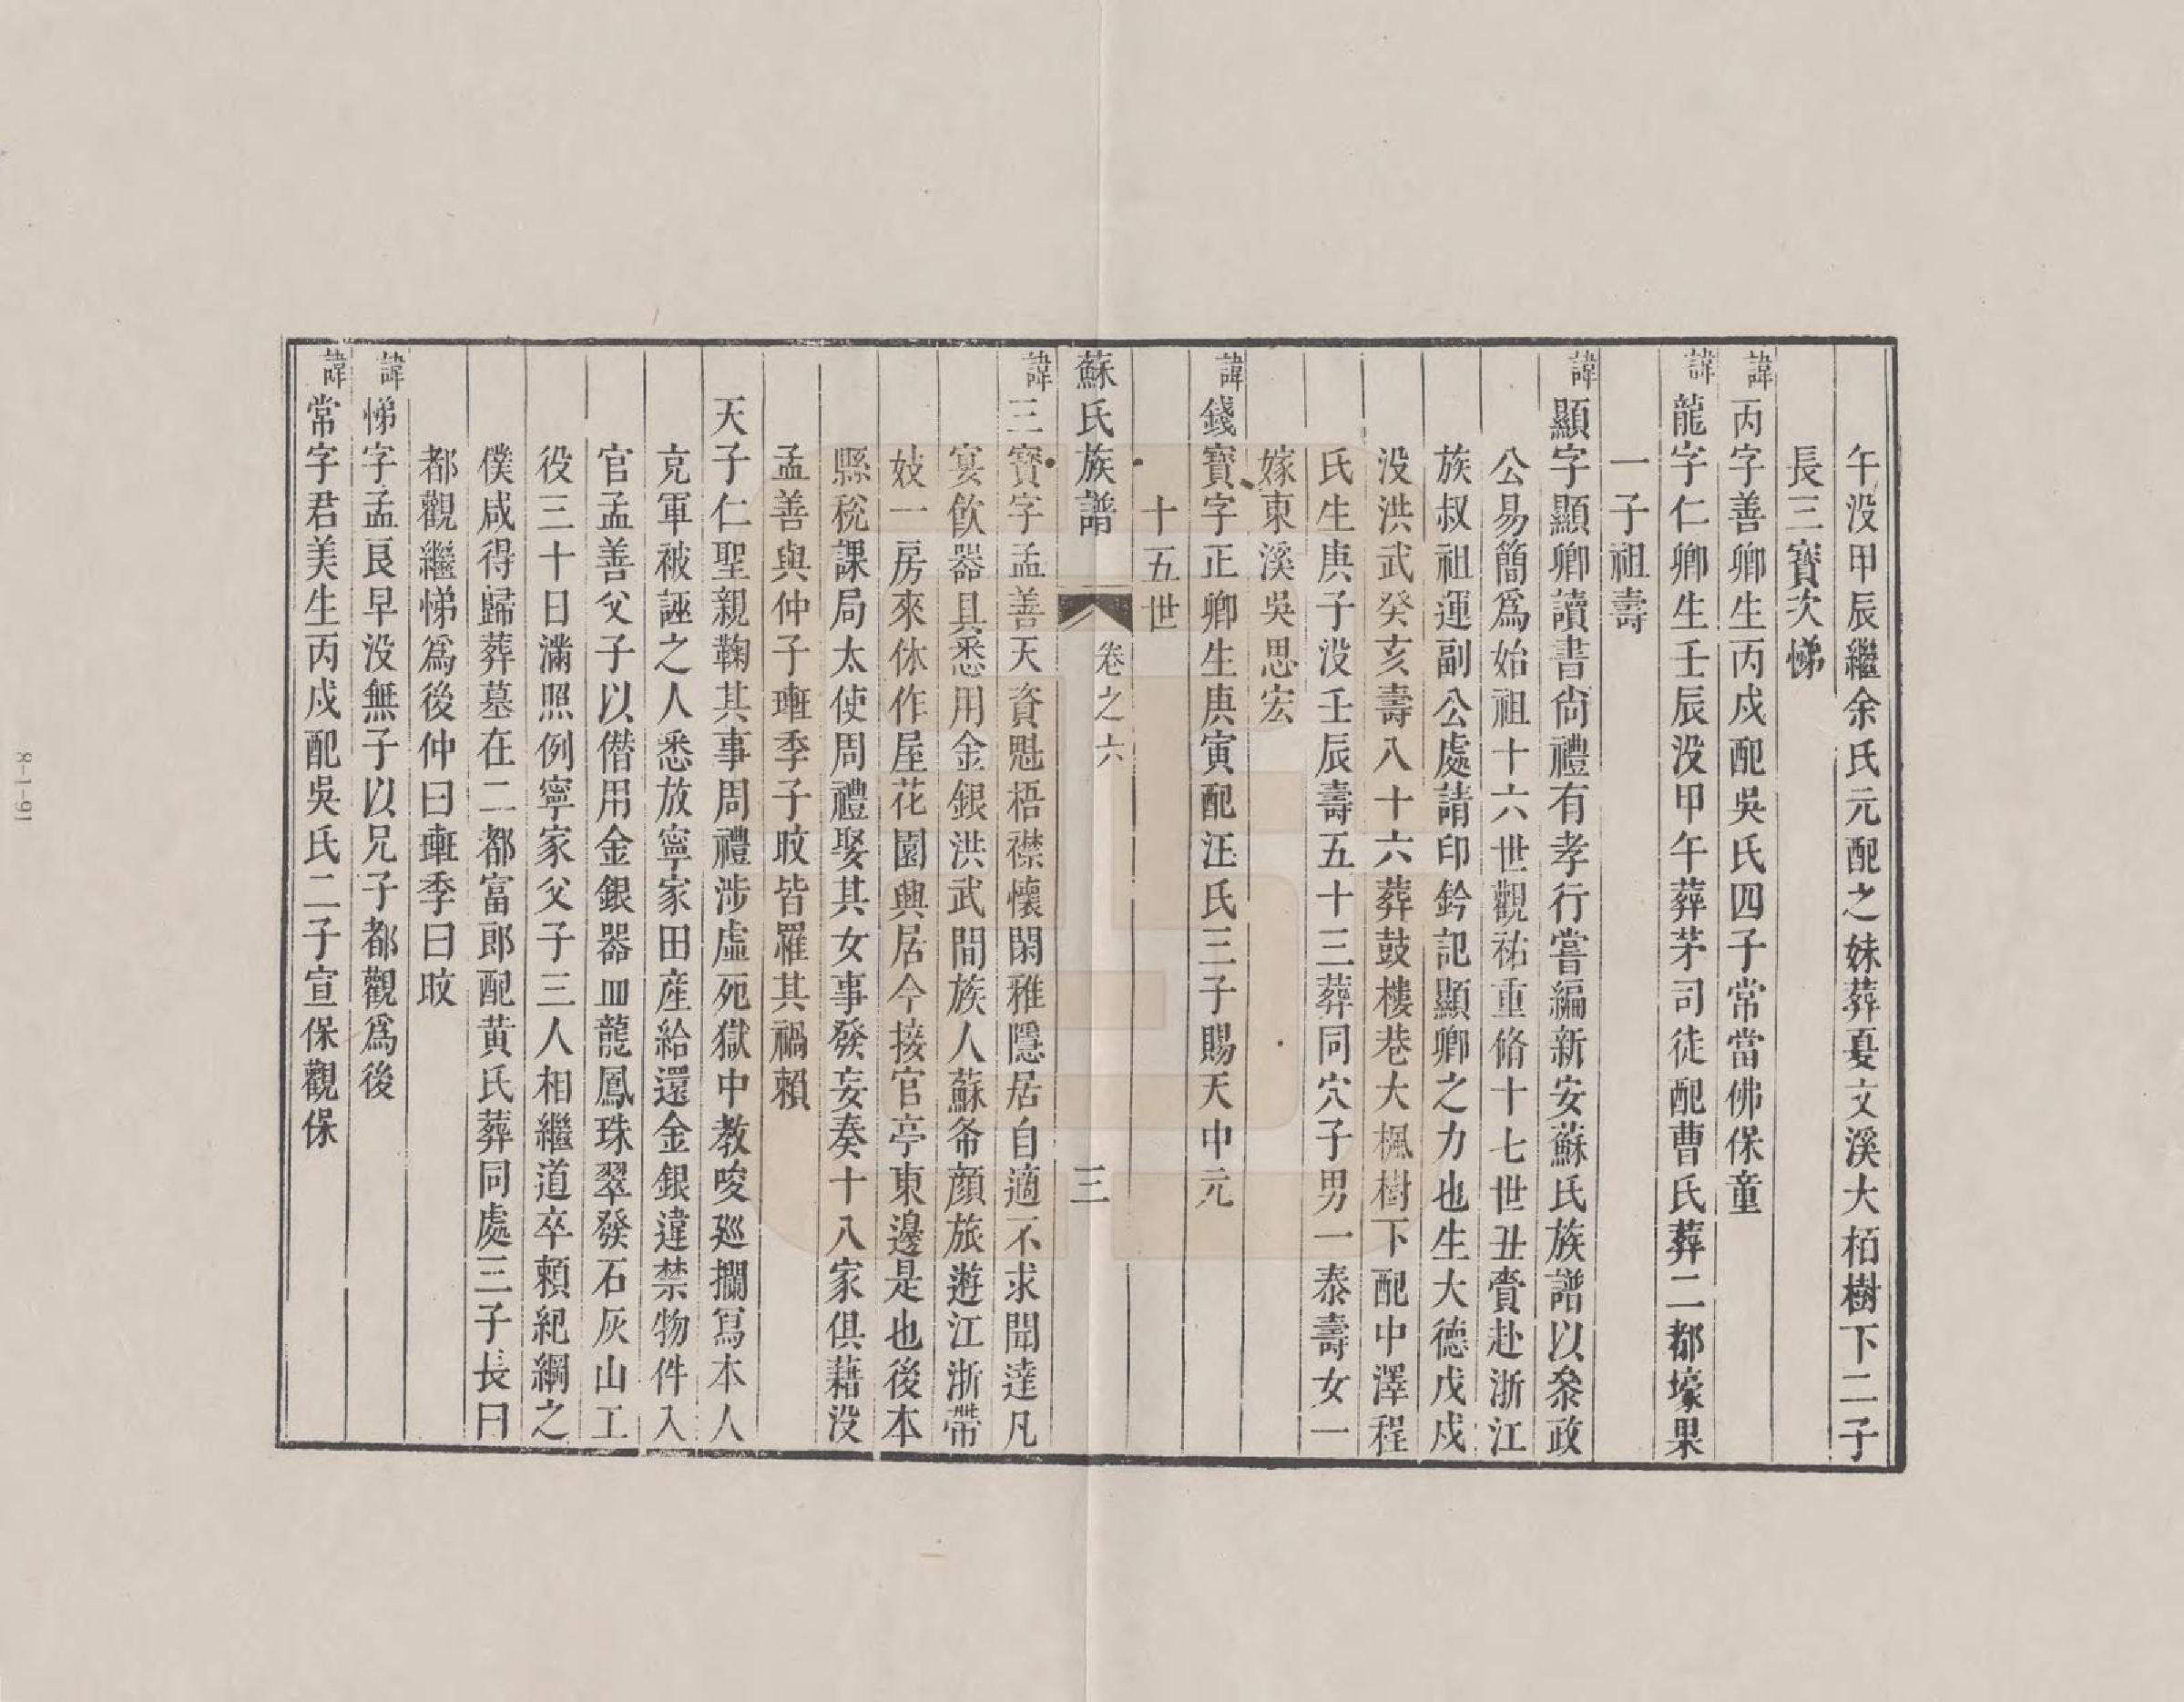 午没甲辰繼余氏元配之妹葬憂文溪大栢樹下二子
長三寶次悌
諱丙字善卿生丙戍配吳氏四子常當佛保童
諱龍字仁卿生壬辰没甲午葬茅司徒配曹氏葬二都壕果
一子祖壽
諱顯字顯卿讀書尙禮有孝行嘗編新安蘇氏族譜以叅政
公易簡爲始祖十六世觀祐重脩十七世丑賫赴浙江
族叔祖運副公處請印鈐記顯卿之力也生大德戊戍
没洪武癸亥壽八十六葬鼓樓巷大楓樹下配中澤程
氏生庚子没壬辰壽五十三葬同穴子男一泰壽女一
嫁東溪吳思宏
諱錢寶字正卿生庚寅配汪氏三子賜天中元
十五世
蘇氏族譜 卷之六 三
諱三寶字孟善天資魁梧襟懷閑雅隱居自適不求聞達凡
宴飮器具悉用金銀洪武間族人蘇爺顔旅遊江浙帶
妓一房來休作屋花園與居今接官亭東邊是也後本
縣稅課局太使周禮娶其女事發妄奏十八家俱藉没
孟善與仲子琟季子旼皆罹其禍賴
天子仁聖親鞠其事周禮涉虛死獄中教唆廵攔寫本人
克軍被誣之人悉放寧家田産給還金銀違禁物件入
官孟善父子以僭用金銀器皿龍鳳珠翠發石灰山工
役三十日滿照例寧家父子三人相繼道卒賴紀綱之
僕咸得歸葬墓在二都富郎配黄氏葬同處三子長曰
都觀繼悌爲後仲曰琟季曰旼
諱悌字孟良早没無子以兄子都觀爲後
諱常字君美生丙戍配吳氏二子宣保觀保
8-1-91